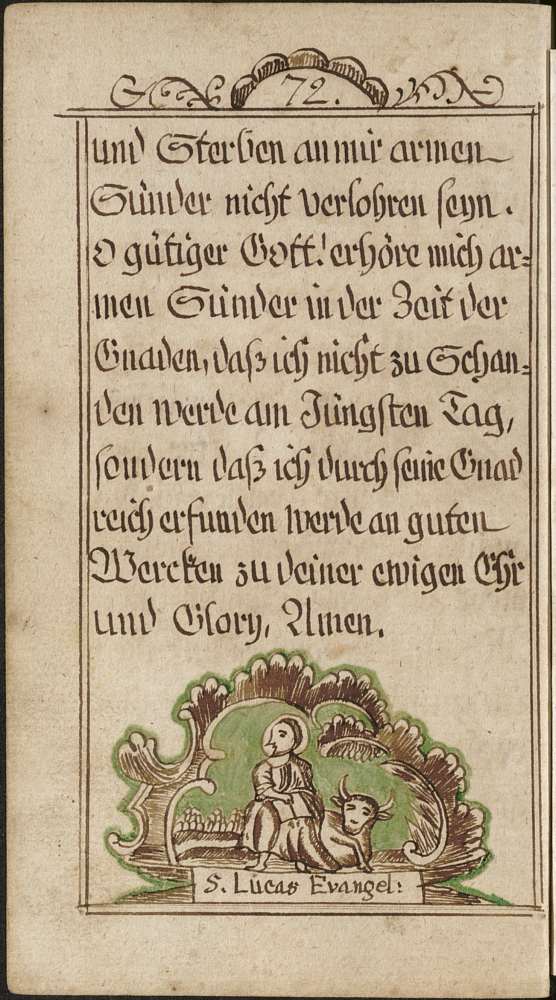 72.
und Sterben an mir armen
Sünder nicht verlohren seyn.
O gütiger Gott! erhöre mich ar=
men Sünder in der Zeit der
Gnaden, daß ich nicht zu Schan=
den werde am Jüngsten Tag,
sondern daß ich durch seine Gnad
reich erfunden werde an guten
Wercken zu deiner ewigen Ehr
und Glory, Amen.
S. Lucas Evangel: